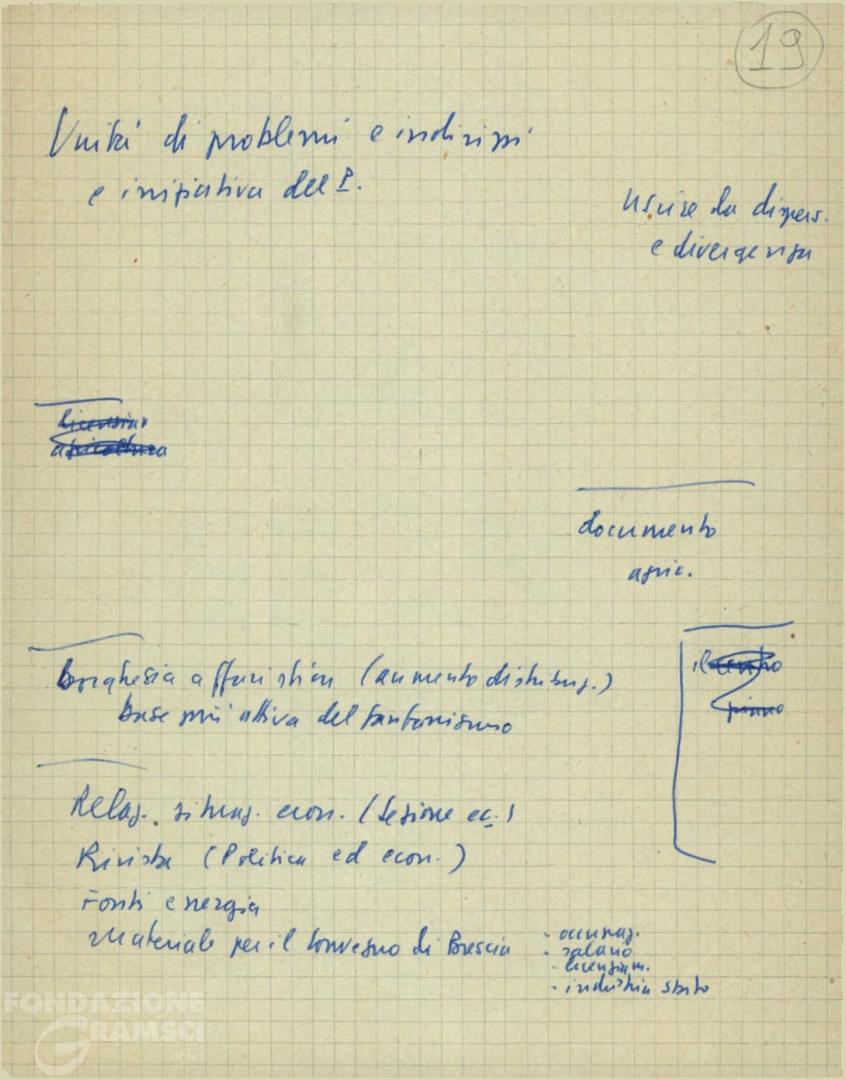 19
Unità di problemi e indirizzi
e iniziativa del P.
uscire da dispers.
e divergenza
licenziam
agricoltura
documento
agric.
Borghesia affaristica (aumento distribuz.)
base più attiva del fanfanismo
il centro
piano
Relaz. situaz. econ. (Sezione ec.)
Rivista (Politica ed econ.)
Fonti energia
Materiale per il Convegno di Brescia
- occupaz.
- salario
- licenziam.
- industria stato
FONDAZIONE
GRAMSCI